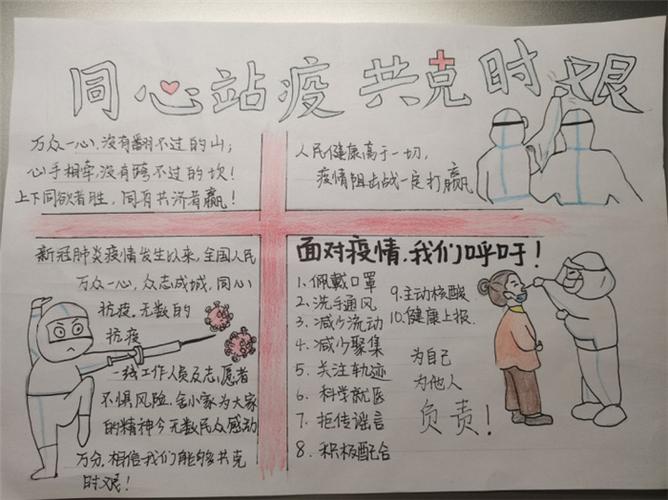 同心站疫 共克时艰
万众一心,没有翻不过的山;
心手相牵,没有跨不过的坎!
上下同欲者胜,同舟共济者赢!
人民健康高于一切,
疫情阻击战一定打赢
新冠肺炎疫情发生以来,全国人民
万众一心,众志成城,同心
抗疫.无数的
抗疫
一线工作人员及志愿者
不惧风险.舍小家为大家
的精神令无数民众感动
万分.相信我们能够共克
时艰!
面对疫情,我们呼吁!
1.佩戴口罩
2.洗手通风
3.减少流动
4.减少聚集
5.关注轨迹
6.科学就医
7.拒传谣言
8.积极配合
9.主动核酸
10.健康上报.
为自己
为他人
负责!